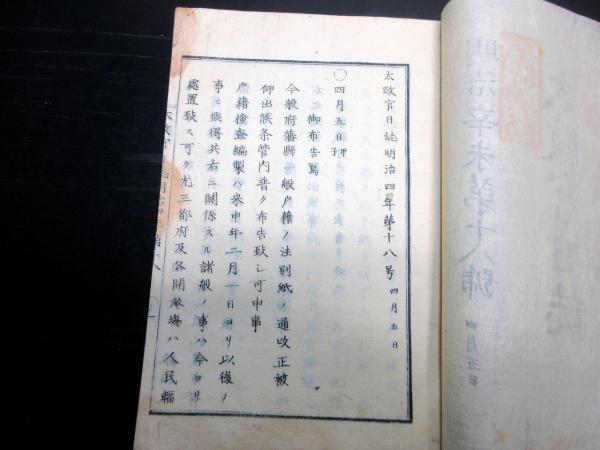 太政官日誌明治四年第十八号 四月五日
〇四月五日
御布告写
今般府藩縣一般戸籍ノ法別紙ノ通改正被
仰出候条管内普ク布告致シ可申事
戸籍検査編製ハ来申年二月一日ヨリ以後ノ
事ニ候得共右ニ關係スル諸般ノ事ハ今ヨリ
處置致ス可ク尤三都府及各開港場ハ人民輻
明治辛未第十八號
四月五日